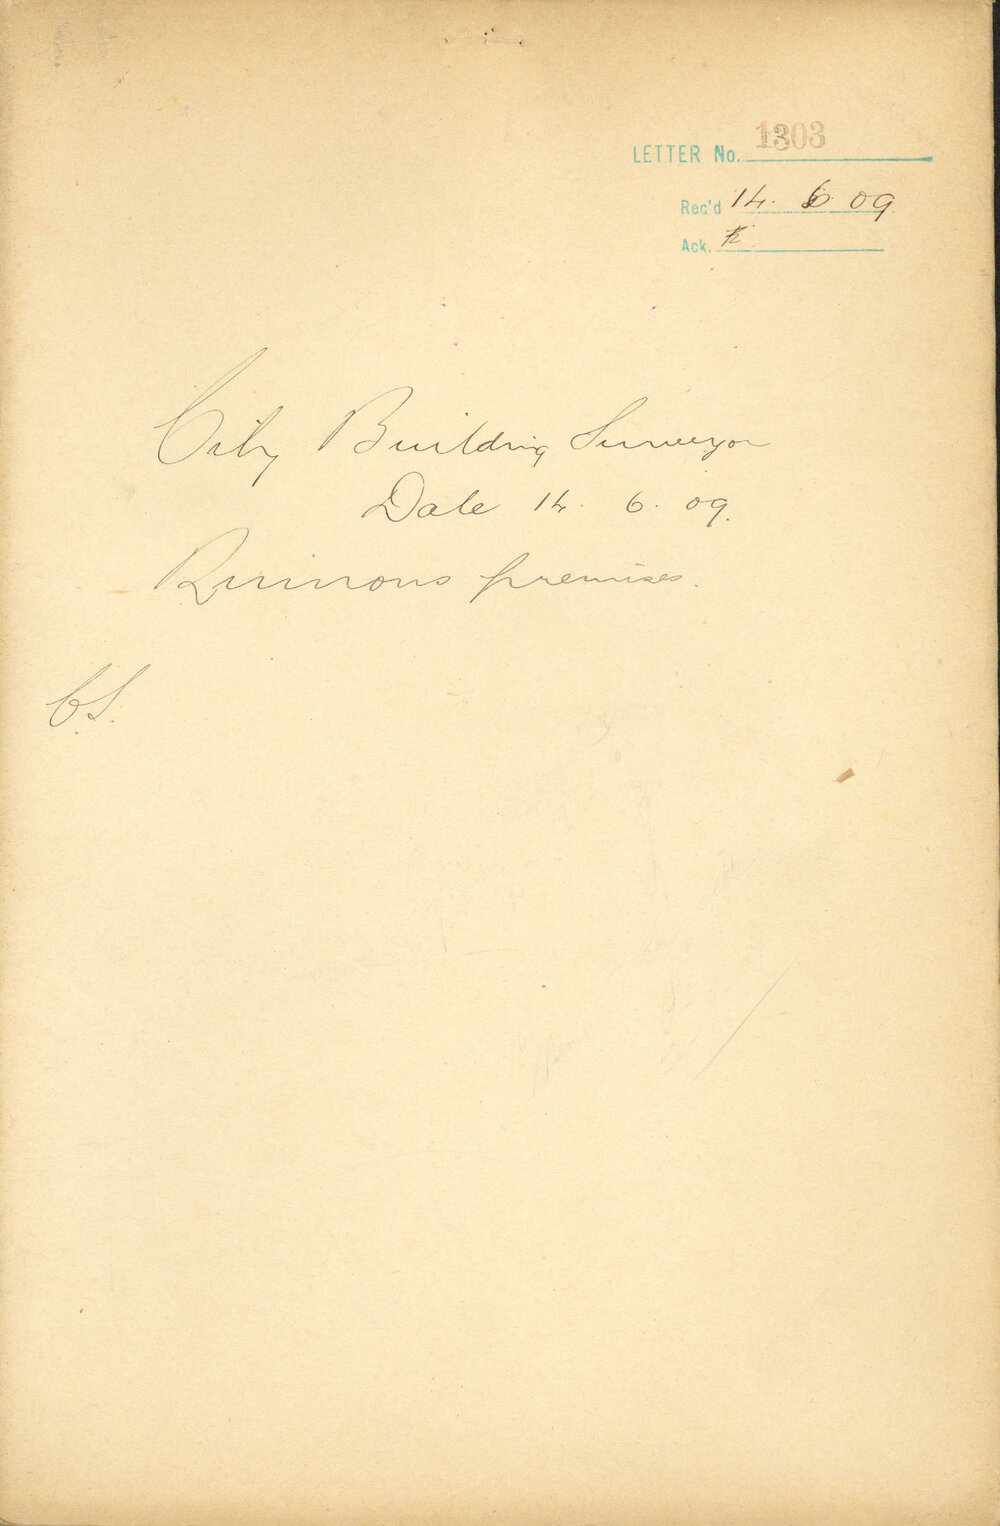 LETTER No. 1303
Rec'd 14. 6. 09
Ack.
City Building Surveyor
Date 14. 6. 09.
Ruinous premises.
C.S.